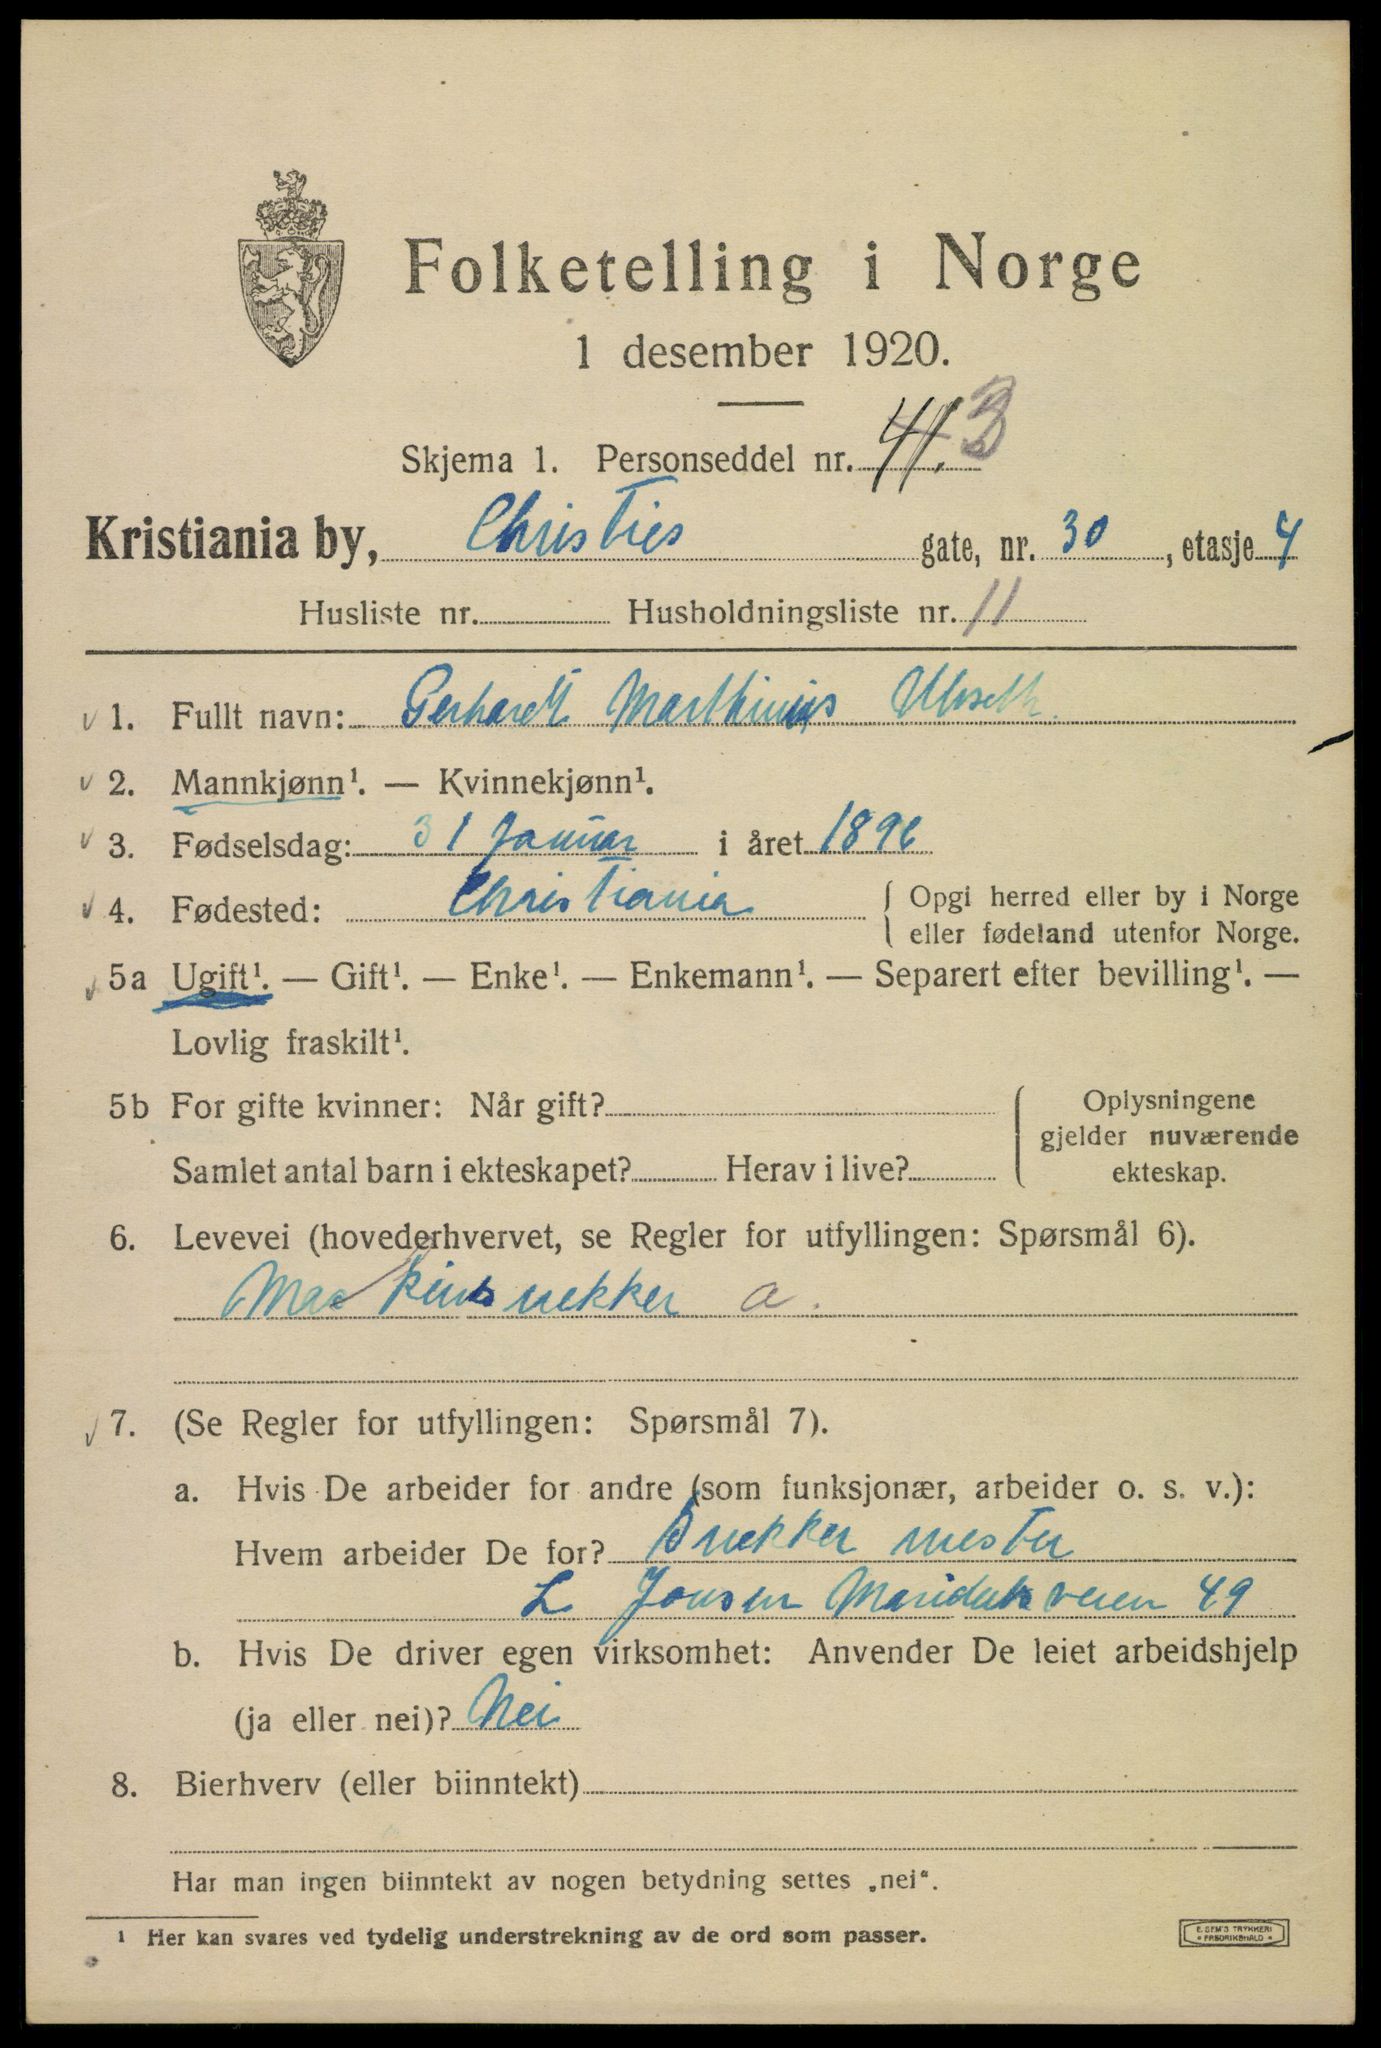 Folketelling i Norge
1 desember 1920.
Skjema 1. Personseddel nr. 41. 3
Kristiania by, Christies gate, nr. 30, etasje 4
Husliste nr. Husholdningsliste nr. 11
1. Fullt navn: Gerhardt Marthinius
2. Mannkjønn¹. — Kvinnekjønn¹.
3. Fødselsdag: 31 Januar i året 1896
4. Fødested: Christiania { Opgi herred eller by i Norge
eller fødeland utenfor Norge.
5a Ugift¹. — Gift¹. — Enke¹. — Enkemann¹. — Separert efter bevilling¹. —
Lovlig fraskilt¹.
5b For gifte kvinner: Når gift? { Oplysningene
gjelder nuværende
Samlet antal barn i ekteskapet? Herav i live? ekteskap.
6. Levevei (hovederhvervet, se Regler for utfyllingen: Spørsmål 6).
Maskinsnekker a.
7. (Se Regler for utfyllingen: Spørsmål 7).
a. Hvis De arbeider for andre (som funksjonær, arbeider o. s. v.):
Hvem arbeider De for? Snekker mester
L Jonsen Maridalsveien 49
b. Hvis De driver egen virksomhet: Anvender De leiet arbeidshjelp
(ja eller nei)? Nei
8. Bierhverv (eller biinntekt)
Har man ingen biinntekt av nogen betydning settes „nei“.
¹ Her kan svares ved tydelig understrekning av de ord som passer.
E. SEM'S TRYKKERI
* FREDRIKSHALD *